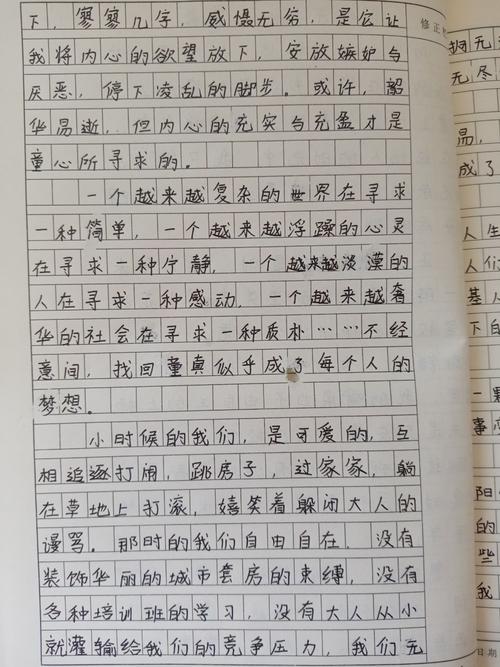 下，寥寥几字，威慑无穷，是它让
我将内心的欲望放下，安放嫉妒与
厌恶，停下凌乱的脚步。或许，韶
华易逝，但内心的充实与充盈才是
童心所寻求的。
一个越来越复杂的世界在寻求
一种简单，一个越来越浮躁的心灵
在寻求一种宁静，一个越来越淡漠的
人在寻求一种感动，一个越来越奢
华的社会在寻求一种质朴……不经
意间，找回童真似乎成了每个人的
梦想。
小时候的我们，是可爱的，互
相追逐打闹，跳房子，过家家，躺
在草地上打滚，嬉笑着躲闭大人的
谩骂。那时的我们自由自在，没有
装饰华丽的城市套房的束缚，没有
各种培训班的学习，没有大人从小
就灌输给我们的竞争压力，我们无
修正
无
无尽
易，
成了
人生
人们
基人
下的
一颗
事
阳
的
些
我
日期